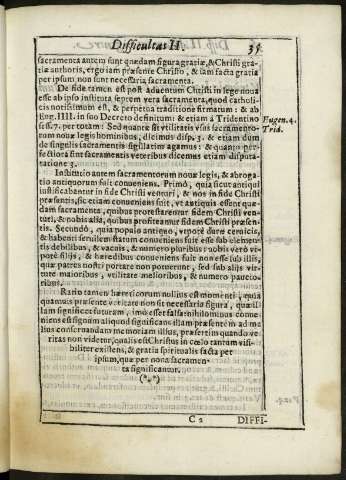 Difficultas II. 35
sacramenta autem sunt quædam figura gratiæ, & Christi gra-
tiæ authoris, ergo iam præsente Christo, & iam facta gratia
per ipsum, non sunt necessaria sacramenta.
De fide tamen est post aduentum Christi in lege noua
esse ab ipso instituta septem vera sacramenta, quod catholi-
cis notissimum est, & perpetua traditione firmatum: & ab
Eug. IIII. in suo Decreto definitum: & etiam à Tridentino
sess. 7. per totam: Sed quanta sit vtilitatis vsus sacramento-
rum nouæ legis hominibus, dicimus disp. 3. & etiam dum
de singulis sacramentis sigillatim agamus: & quanto per-
fectiora sint sacramentis veteribus dicemus etiam disputa-
tatione 3.
Eugen. 4.
Trid.
Institutio autem sacramentorum nouæ legis, & abroga-
tio antiquorum fuit conueniens. Primò, quia sicut antiqui
iustificabantur in fide Christi venturi, & nos in fide Christi
præsentis, sic etiam conueniens fuit, vt antiquis essent quæ-
dam sacramenta, quibus protestarentur fidem Christi ven-
turi, & nobis alia, quibus profiteamur fidem Christi præsen-
tis. Secundò, quia populo antiquo, vtpotè duræ ceruicis,
& habenti seruilem statum conueniens fuit esse sub elemen-
tis debilibus, & vacuis, & numero pluribus: nobis verò vt-
potè filijs, & hæredibus conueniens fuit non esse sub illis,
quæ patres nostri portare non potuerunt, sed sub alijs vir-
tute maioribus, vtilitate melioribus, & numero paucio-
ribus.
Ratio tamen hæreticorum nullius est momenti, quia
quamuis præsente veritate non sit necessaria figura, quæ il-
lam significet futuram, imò esset falsa: nihilominus conue-
niens est signum aliquod significans illam præsentem ad me
lius conseruandam memoriam illius, præsertim quando ve-
ritas non videtur, qualis est Christus in cœlo tantum visi-
biliter existens, & gratia spiritualis facta per
ipsum, quæ per noua sacramen-
ta significantur.
(*.*)
C 2 DIFFI-